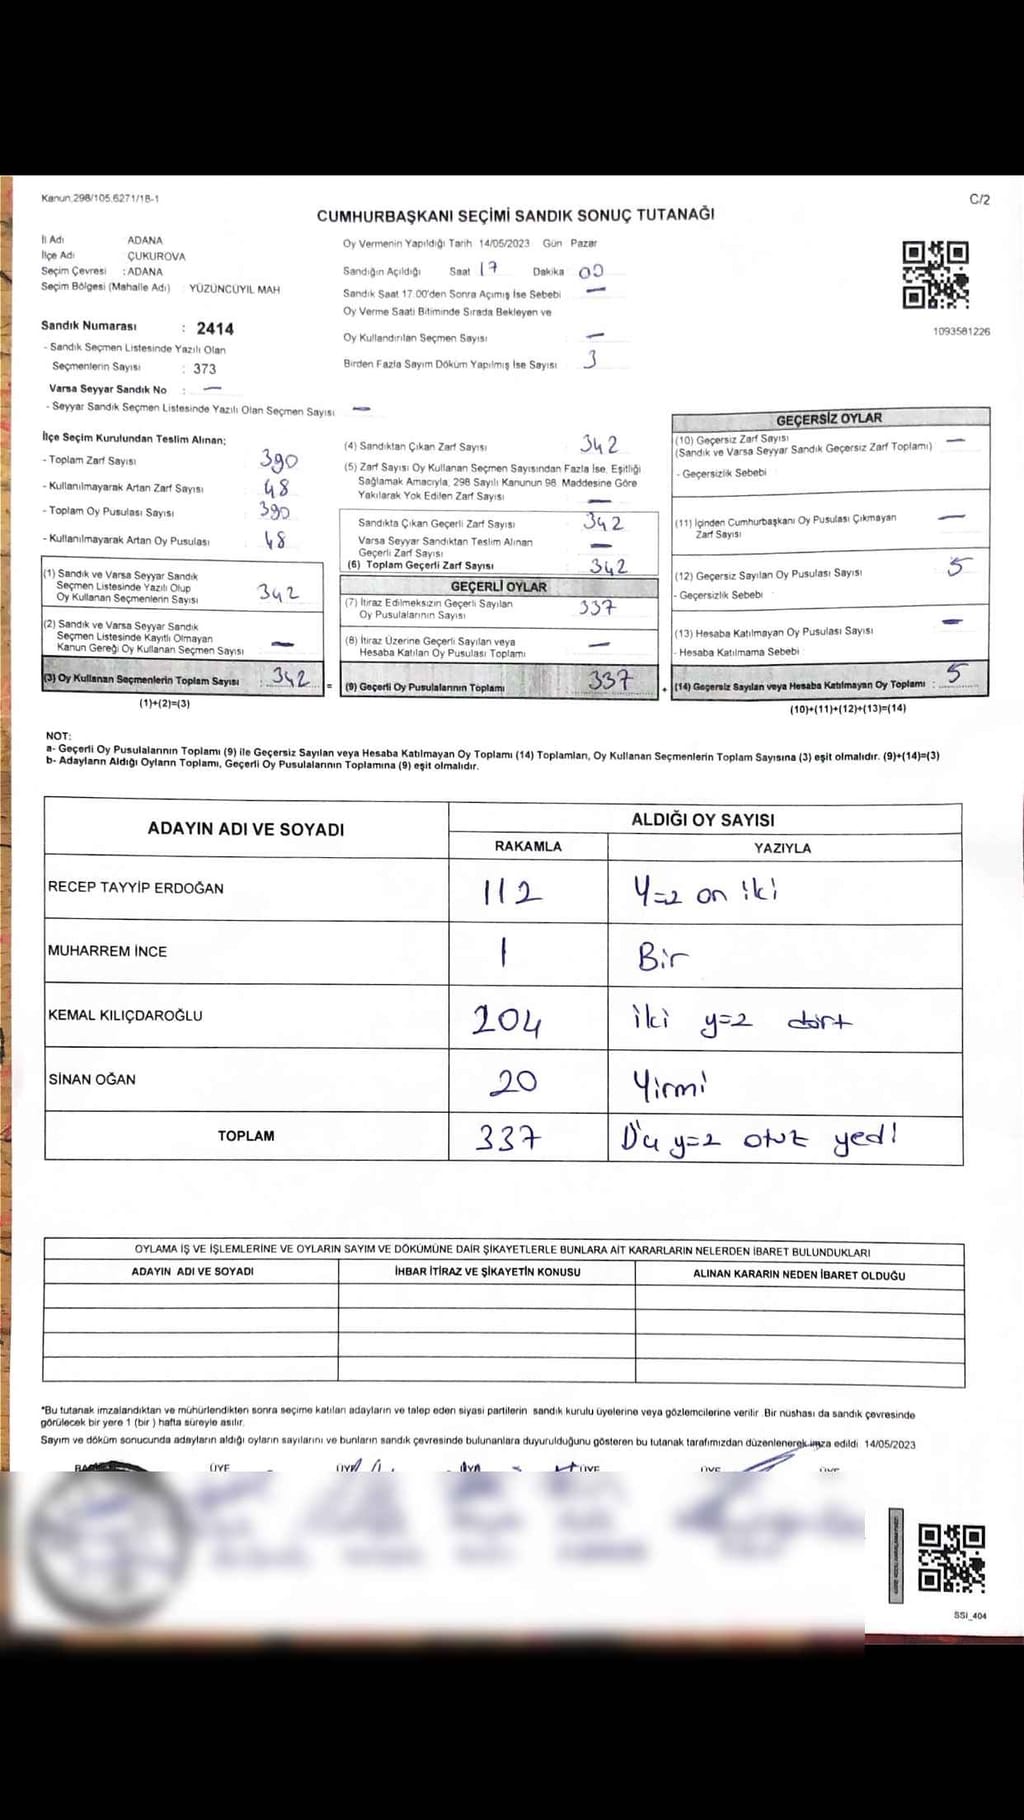 Kanun.298/105.6271/18-1
C/2
CUMHURBAŞKANI SEÇİMİ SANDIK SONUÇ TUTANAĞI
İl Adı ADANA
İlçe Adı ÇUKUROVA
Seçim Çevresi : ADANA
Seçim Bölgesi (Mahalle Adı) : YÜZÜNCÜYIL MAH
Sandık Numarası : 2414
- Sandık Seçmen Listesinde Yazılı Olan
Seçmenlerin Sayısı : 373
Varsa Seyyar Sandık No : —
- Seyyar Sandık Seçmen Listesinde Yazılı Olan Seçmen Sayısı —
Oy Vermenin Yapıldığı Tarih 14/05/2023 Gün Pazar
Sandığın Açıldığı Saat 17 Dakika 00
Sandık Saat 17:00'den Sonra Açımış İse Sebebi —
Oy Verme Saati Bitiminde Sırada Bekleyen ve
Oy Kullandırılan Seçmen Sayısı —
Birden Fazla Sayım Döküm Yapılmış İse Sayısı 3
1093581226
İlçe Seçim Kurulundan Teslim Alınan;
- Toplam Zarf Sayısı 390
- Kullanılmayarak Artan Zarf Sayısı 48
- Toplam Oy Pusulası Sayısı 390
- Kullanılmayarak Artan Oy Pusulası 48
(1) Sandık ve Varsa Seyyar Sandık
Seçmen Listesinde Yazılı Olup
Oy Kullanan Seçmenlerin Sayısı 342
(2) Sandık ve Varsa Seyyar Sandık
Seçmen Listesinde Kayıtlı Olmayan
Kanun Gereği Oy Kullanan Seçmen Sayısı —
(3) Oy Kullanan Seçmenlerin Toplam Sayısı : 342 =
(1)+(2)=(3)
(4) Sandıktan Çıkan Zarf Sayısı 342
(5) Zarf Sayısı Oy Kullanan Seçmen Sayısından Fazla İse, Eşitliği
Sağlamak Amacıyla, 298 Sayılı Kanunun 98. Maddesine Göre
Yakılarak Yok Edilen Zarf Sayısı —
Sandıkta Çıkan Geçerli Zarf Sayısı 342
Varsa Seyyar Sandıktan Teslim Alınan
Geçerli Zarf Sayısı —
(6) Toplam Geçerli Zarf Sayısı 342
GEÇERLİ OYLAR
(7) İtiraz Edilmeksizin Geçerli Sayılan
Oy Pusulalarının Sayısı 337
(8) İtiraz Üzerine Geçerli Sayılan veya
Hesaba Katılan Oy Pusulası Toplamı —
(9) Geçerli Oy Pusulalarının Toplamı 337 +
GEÇERSİZ OYLAR
(10) Geçersiz Zarf Sayısı —
(Sandık ve Varsa Seyyar Sandık Geçersiz Zarf Toplamı)
- Geçersizlik Sebebi
(11) İçinden Cumhurbaşkanı Oy Pusulası Çıkmayan —
Zarf Sayısı
(12) Geçersiz Sayılan Oy Pusulası Sayısı 5
- Geçersizlik Sebebi
(13) Hesaba Katılmayan Oy Pusulası Sayısı —
- Hesaba Katılmama Sebebi
(14) Geçersiz Sayılan veya Hesaba Katılmayan Oy Toplamı : 5
(10)+(11)+(12)+(13)=(14)
NOT:
a- Geçerli Oy Pusulalarının Toplamı (9) ile Geçersiz Sayılan veya Hesaba Katılmayan Oy Toplamı (14) Toplamları, Oy Kullanan Seçmenlerin Toplam Sayısına (3) eşit olmalıdır. (9)+(14)=(3)
b- Adayların Aldığı Oyların Toplamı, Geçerli Oy Pusulalarının Toplamına (9) eşit olmalıdır.
ADAYIN ADI VE SOYADI ALDIĞI OY SAYISI
RAKAMLA YAZIYLA
RECEP TAYYİP ERDOĞAN 112 Y=2 on iki
MUHARREM İNCE 1 Bir
KEMAL KILIÇDAROĞLU 204 iki y=2 dört
SİNAN OĞAN 20 Yirmi
TOPLAM 337 y=2 otuz yedi
OYLAMA İŞ VE İŞLEMLERİNE VE OYLARIN SAYIM VE DÖKÜMÜNE DAİR ŞİKAYETLERLE BUNLARA AİT KARARLARIN NELERDEN İBARET BULUNDUKLARI
ADAYIN ADI VE SOYADI İHBAR İTİRAZ VE ŞİKAYETİN KONUSU ALINAN KARARIN NEDEN İBARET OLDUĞU
*Bu tutanak imzalandıktan ve mühürlendikten sonra seçime katılan adayların ve talep eden siyasi partilerin sandık kurulu üyelerine veya gözlemcilerine verilir. Bir nüshası da sandık çevresinde
görülecek bir yere 1 (bir ) hafta süreyle asılır.
Sayım ve döküm sonucunda adayların aldığı oyların sayılarını ve bunların sandık çevresinde bulunanlara duyurulduğunu gösteren bu tutanak tarafımızdan düzenlenerek imza edildi. 14/05/2023
ÜYE ÜYE ÜYE ÜYE
SSI_404